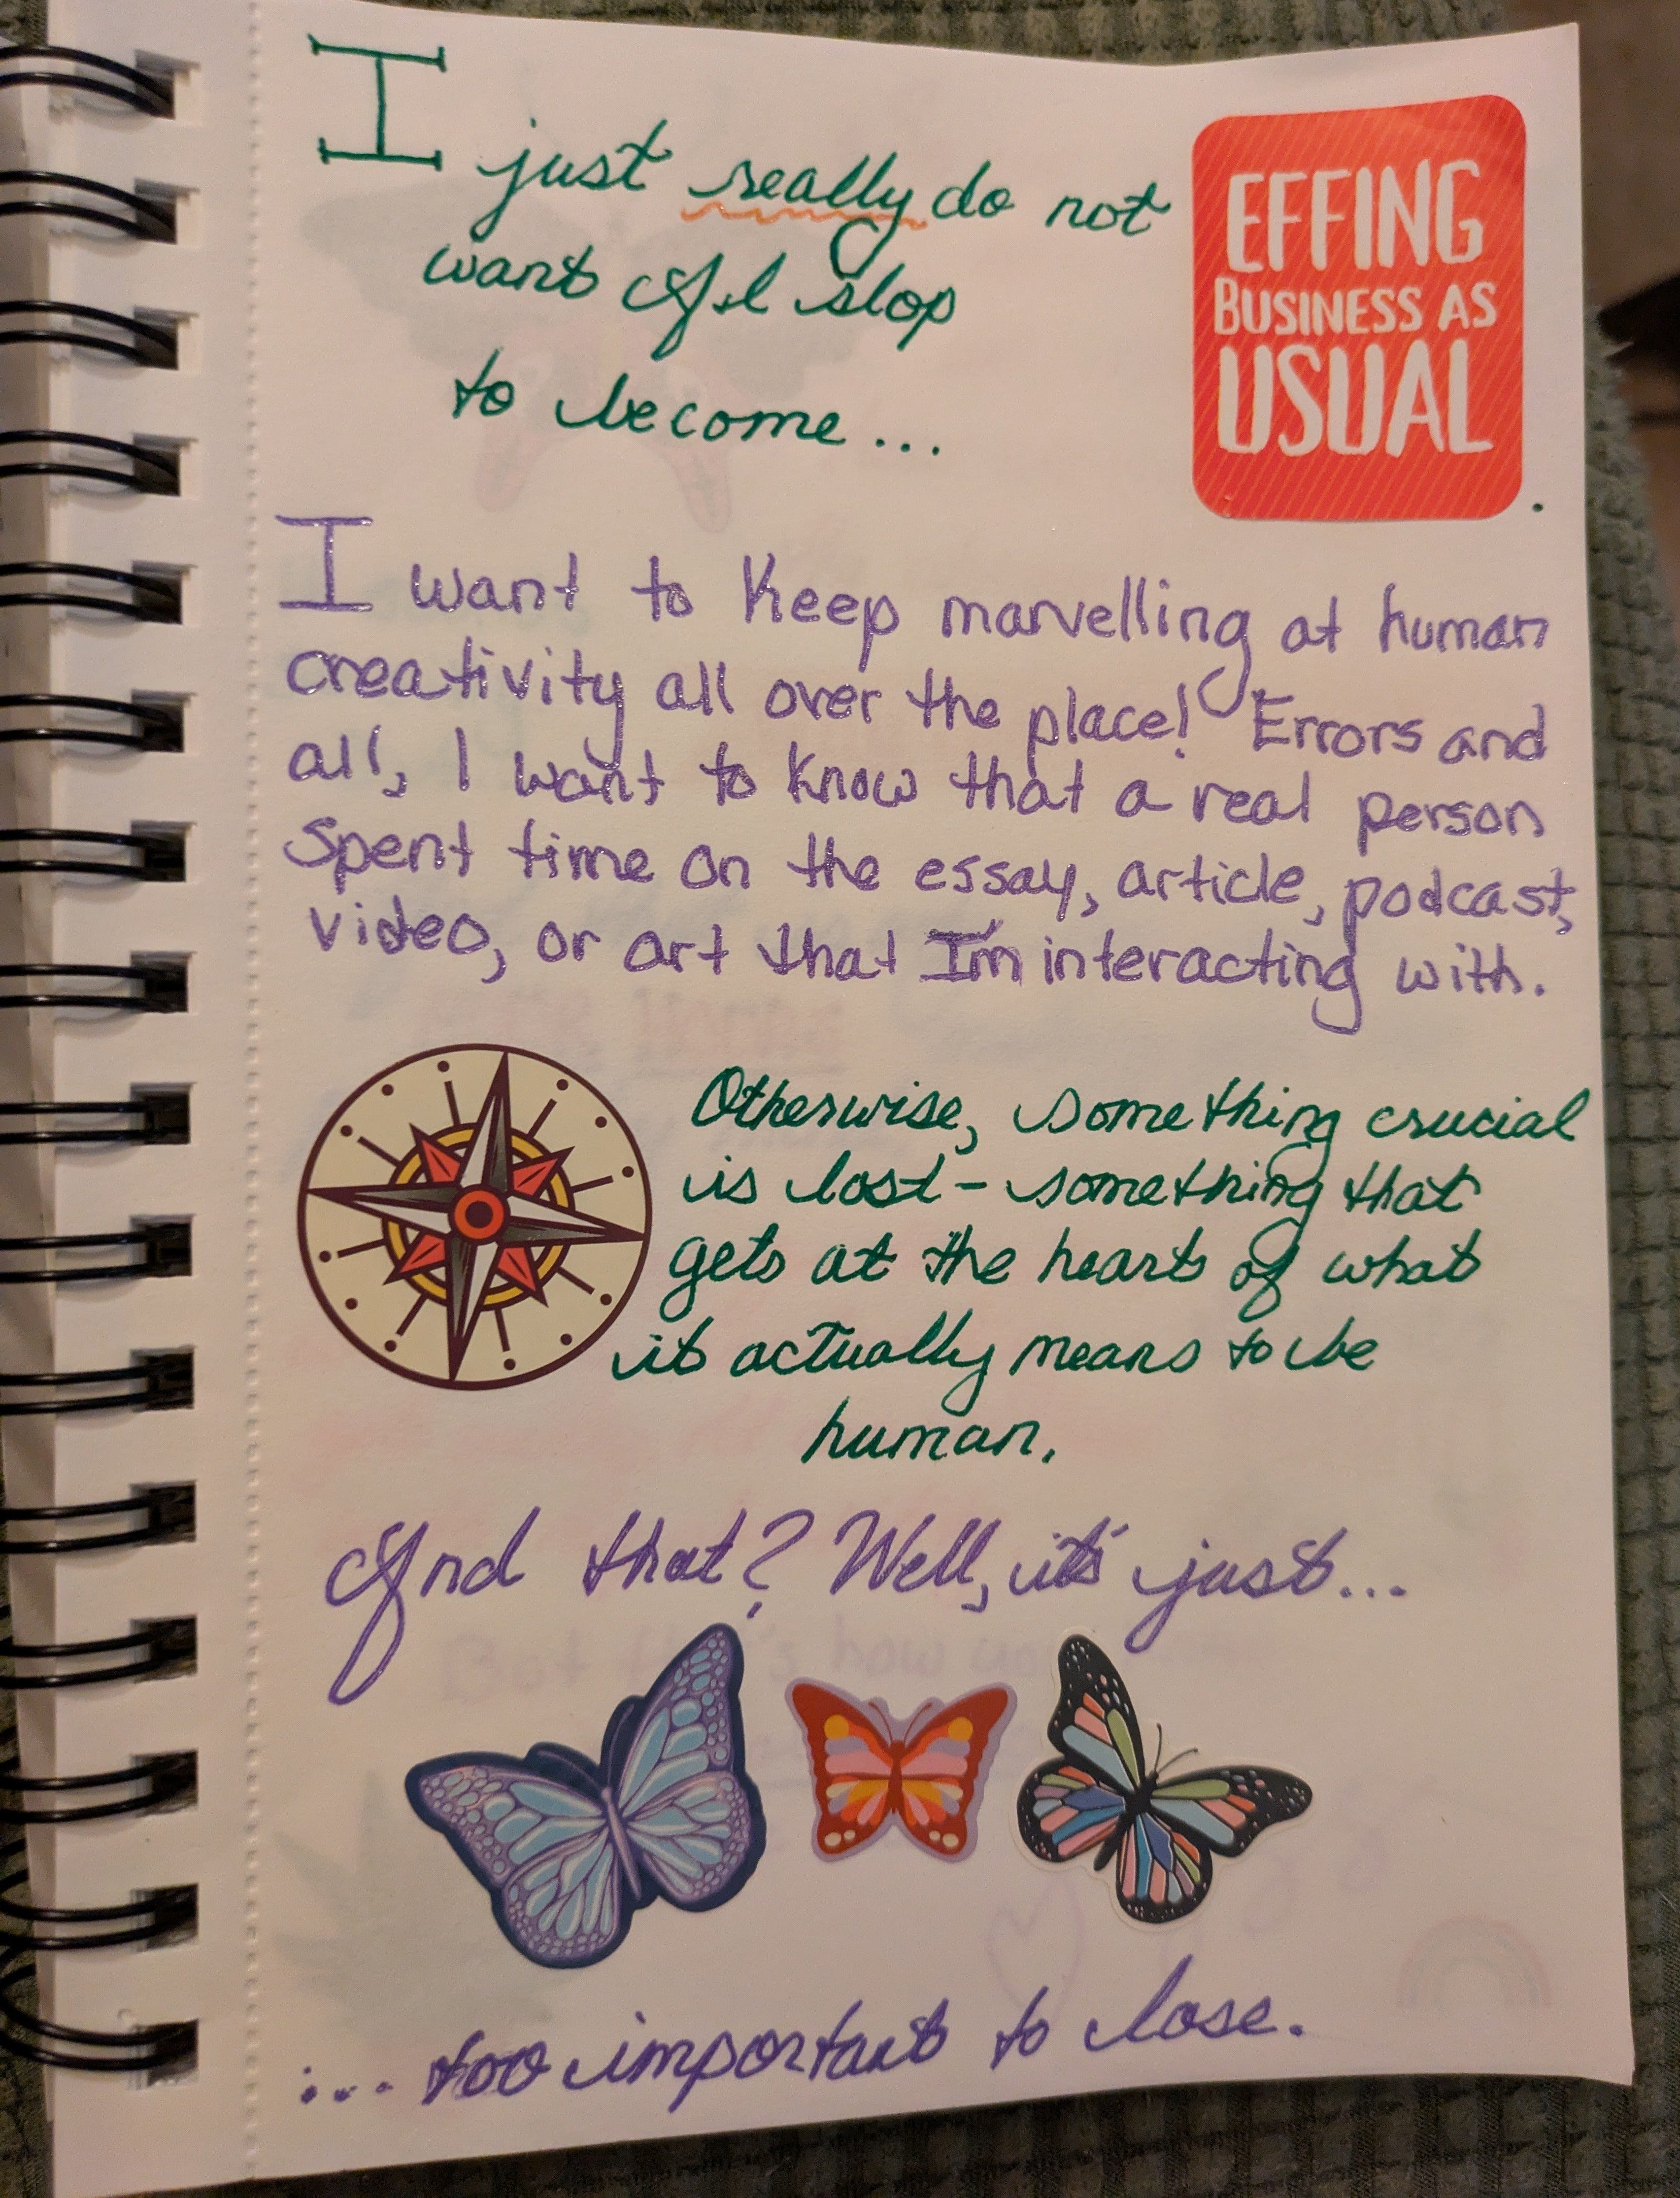 I just really do not
want AI slop
to become...
EFFING
BUSINESS AS
USUAL
.
I want to keep marvelling at human
creativity all over the place! Errors and
all, I want to know that a real person
spent time on the essay, article, podcast,
video, or art that I'm interacting with.
Otherwise, something crucial
is lost - something that
gets at the heart of what
it actually means to be
human.
And that? Well, it's just...
... too important to lose.